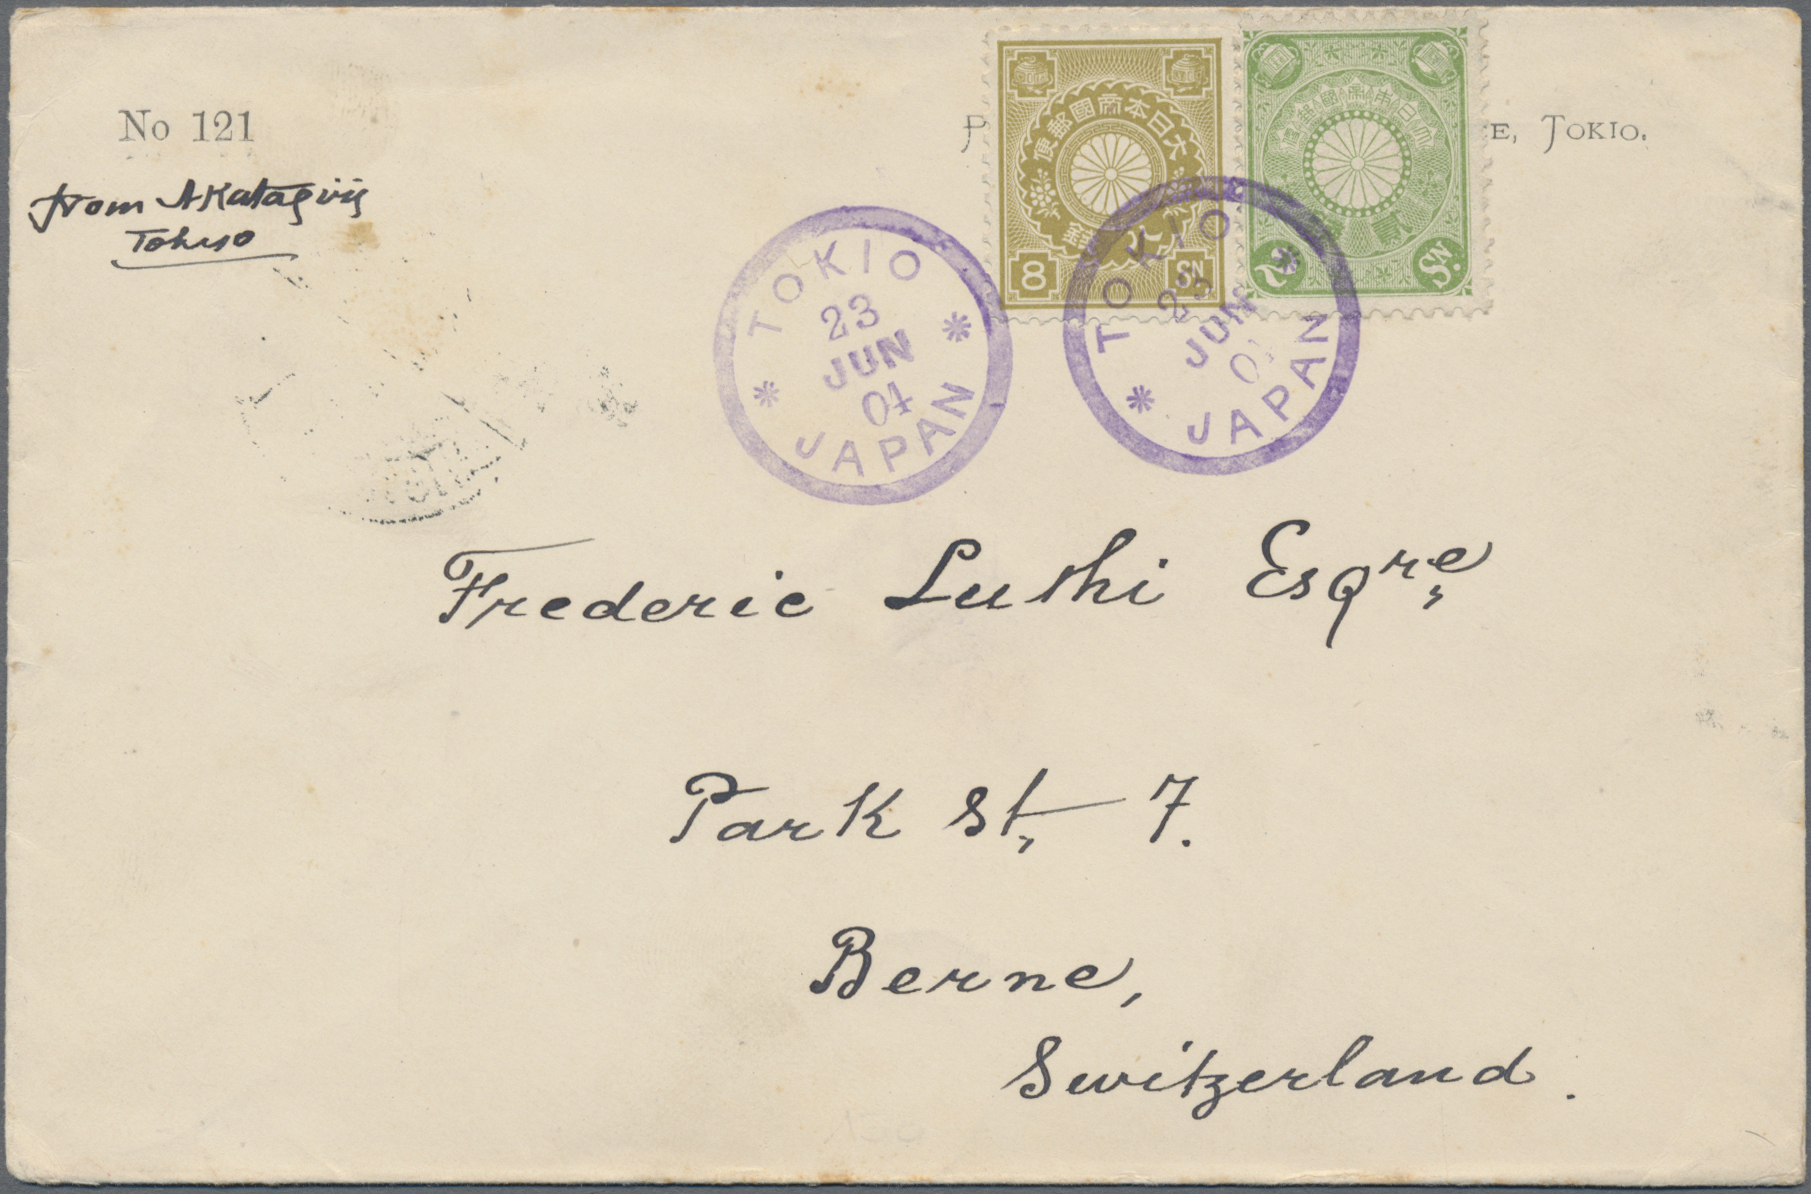 No 121
E, TOKIO.
from A Katagiri
Tokyo
大日本帝國郵便
8 SN.
大日本帝國郵便
2 SN.
TOKIO
23
JUN
04
JAPAN
TOKIO
23
JUN
JAPAN
Frederic Luthi Esqre,
Park St, 7.
Berne,
Switzerland.